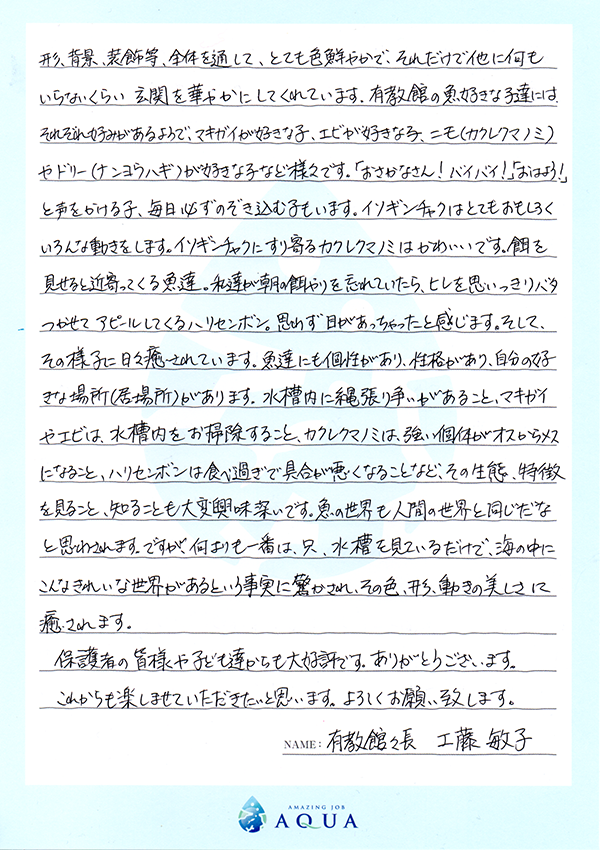 形、背景、装飾等、全体を通して、とても色鮮やかで、それだけで他に何も
いらないくらい玄関を華やかにしてくれています。有教館の魚好きな子達には、
それぞれ好みがあるようで、マキガイが好きな子、エビが好きな子、ニモ(カクレクマノミ)
やドリー(ナンヨウハギ)が好きな子など様々です。「おさかなさん!バイバイ!」「おはよう!」
と声をかける子、毎日必ずのぞき込む子もいます。イソギンチャクはとてもおもしろく
いろんな動きをします。イソギンチャクにすり寄るカクレクマノミはかわいいです。餌を
見せると近寄ってくる魚達。私達が朝の餌やりを忘れていたら、ヒレを思いっきりバタ
つかせてアピールしてくるハリセンボン。思わず目があっちゃったと感じます。そして、
その様子に日々癒されています。魚達にも個性があり、性格があり、自分の好
きな場所(居場所)があります。水槽内に縄張り争いがあること、マキガイ
やエビは、水槽内をお掃除すること、カクレクマノミは、強い個体がオスからメス
になること、ハリセンボンは食べ過ぎで具合が悪くなることなど、その生態、特徴
を見ること、知ることも大変興味深いです。魚の世界も人間の世界と同じだな
と思わされます。ですが、何よりも一番は、只、水槽を見ているだけで、海の中に
こんなきれいな世界があるという事実に驚かされ、その色、形、動きの美しさに
癒されます。
保護者の皆様や子ども達からも大好評です。ありがとうございます。
これからも楽しませていただきたいと思います。よろしくお願い致します。
NAME: 有教館々長 工藤 敏子
AMAZING JOB
AQUA